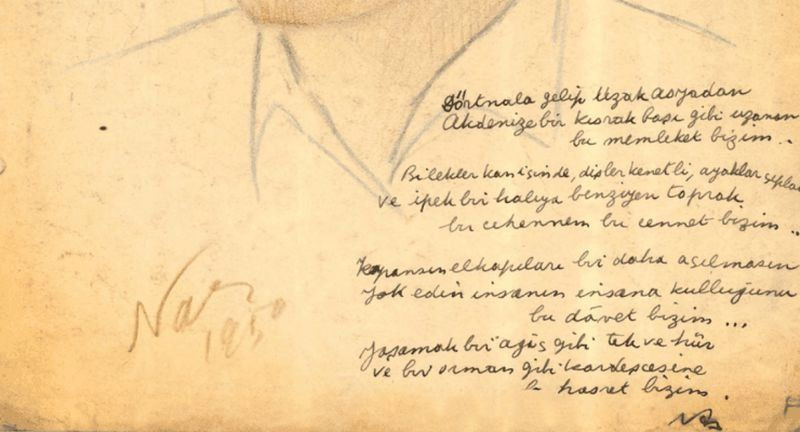 Dörtnala gelip Uzak Asyadan
Akdenize bir kısrak başı gibi uzanan
bu memleket bizim..
Bilekler kan içinde, dişler kenetli, ayaklar çıplak
ve ipek bir halıya benziyen toprak
bu cehennem bu cennet bizim..
Kapansın el kapıları bir daha açılmasın
yok edin insanın insana kulluğunu
bu dâvet bizim...
Yaşamak bir ağaç gibi tek ve hür
ve bir orman gibi kardeşçesine
bu hasret bizim.
1950